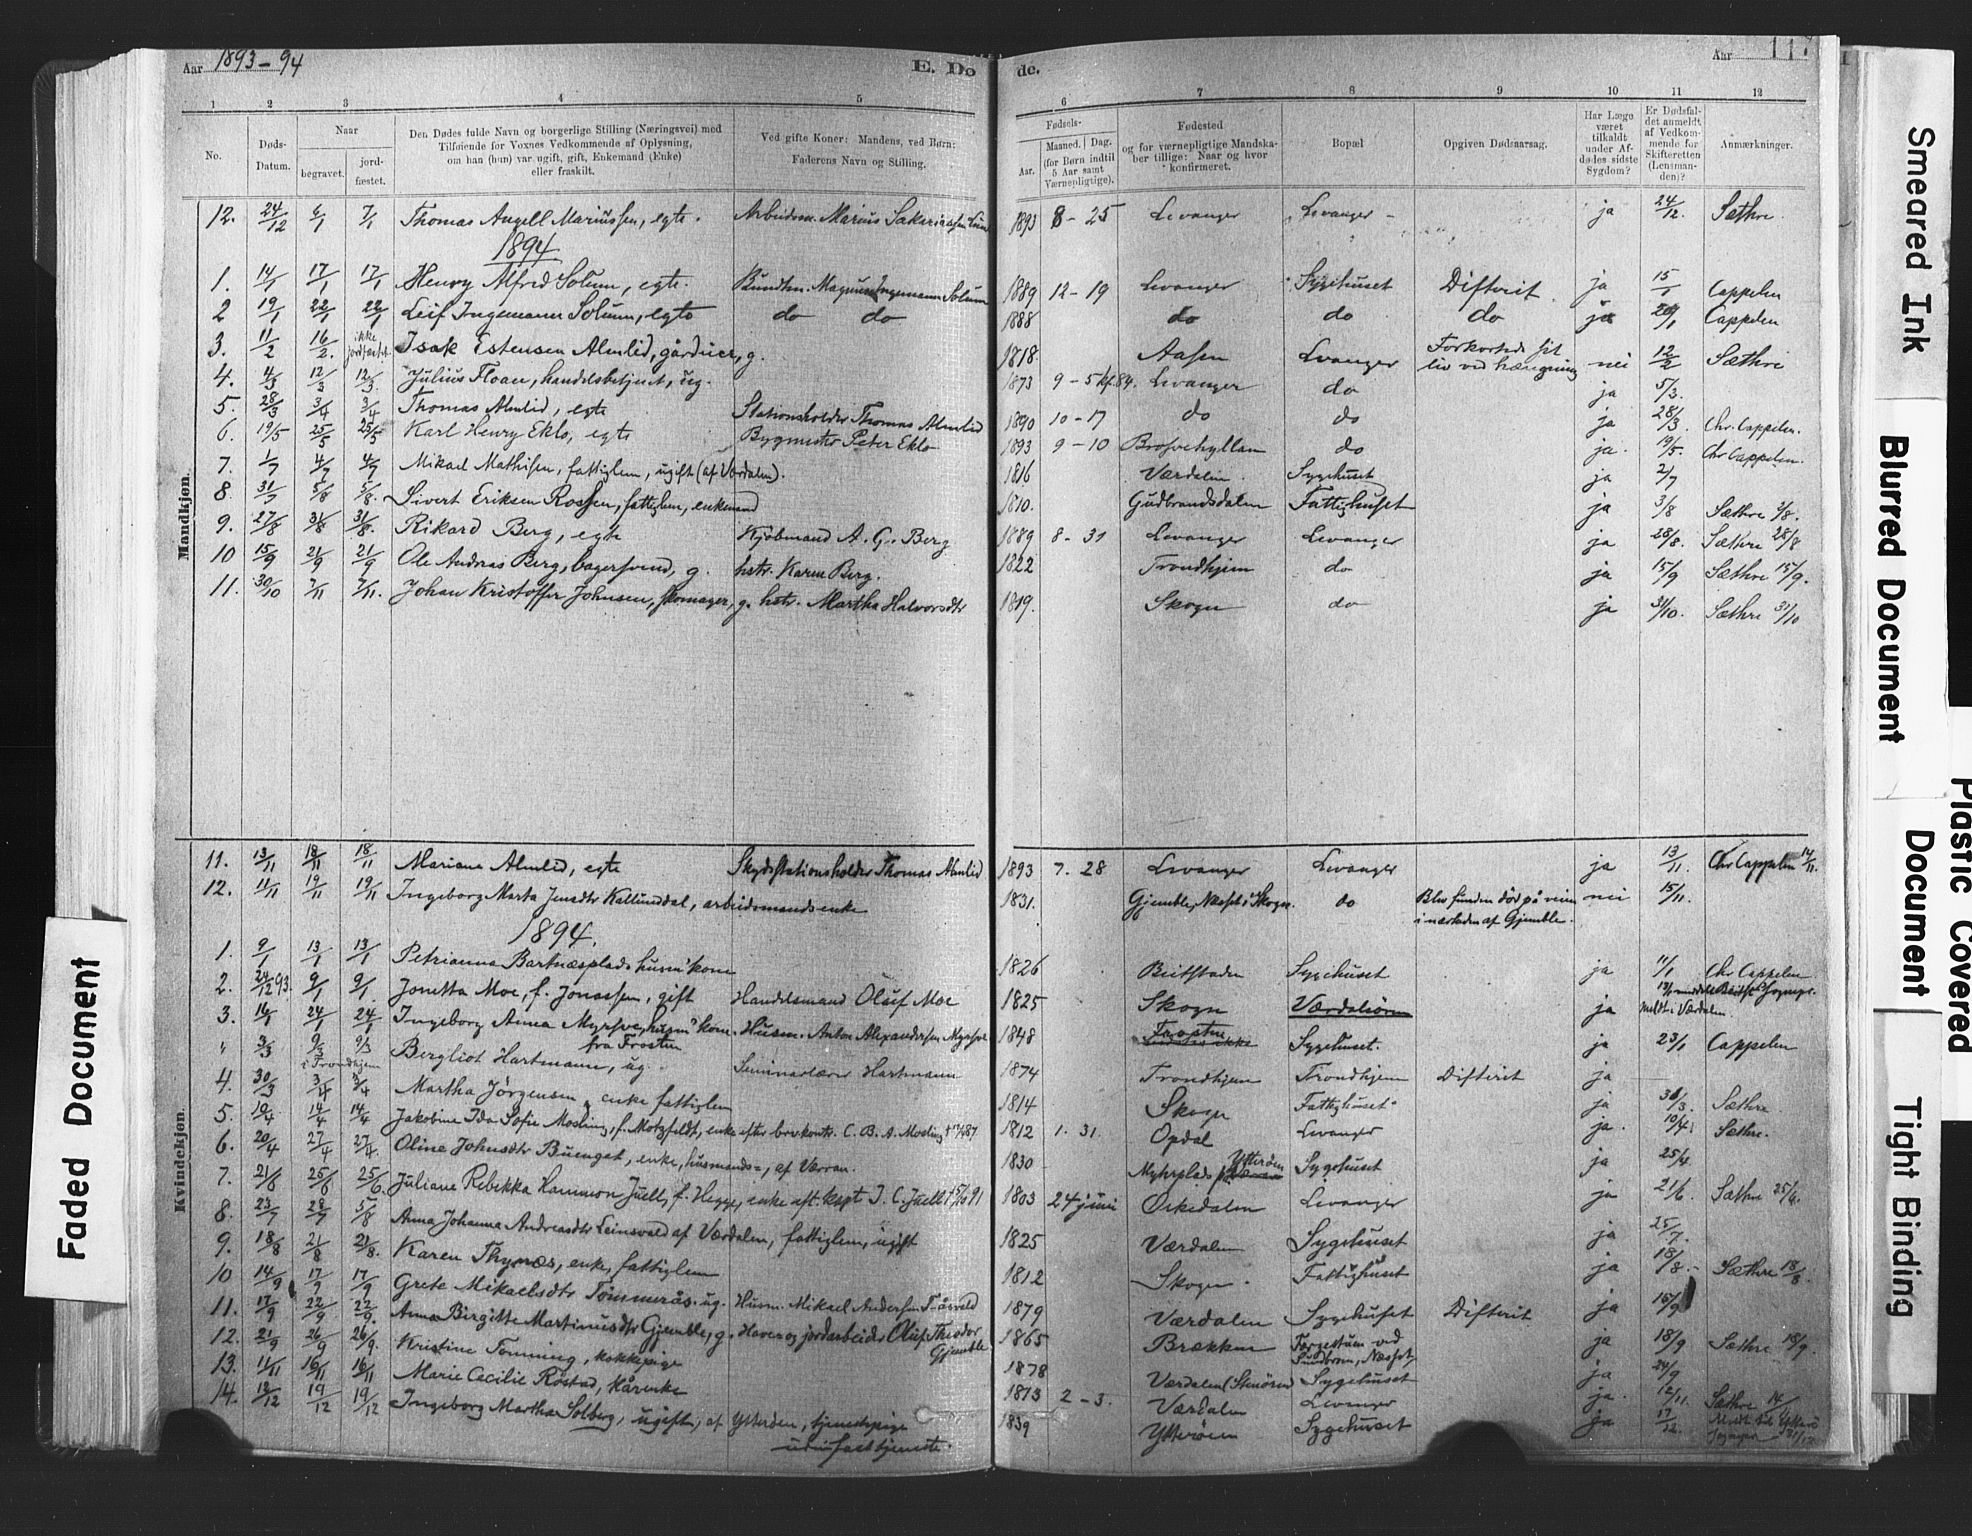 Aar 1893-94
E. Do
de.
Aar 117
1 2 3 4 5 6 7 8 9 10 11 12
No.
Døds-Datum.
Naar
begravet.
jord-fæstet.
Den Dødes fulde Navn og borgerlige Stilling (Næringsvei) med
Tilføiende for Voxnes Vedkommende af Oplysning,
om han (hun) var ugift, gift, Enkemand (Enke)
eller fraskilt.
Ved gifte Koner: Mandens, ved Børn:
Faderens Navn og Stilling.
Fødsels-
Aar.
Maaned. Dag.
(for Børn indtil
5 Aar samt
Værnepligtige).
Fødested
og for værnepligtige Mandska-
ber tillige: Naar og hvor
konfirmeret.
Bopæl
Opgiven Dødsaarsag.
Har Læge
været
tilkaldt
under Af-
dødes sidste
Sygdom?
Er Dødsfal-
det anmeldt
af Vedkom-
mende for
Skifteretten
(Lensman-
den)?
Anmærkninger.
Mandkjøn.
12. 24/12 6/1 7/1 Thomas Angell Mariussen, egte. Arbeidsm. Marius Sakariassen 1893 8-25 Levanger Levanger ja 24/12. Sæthre.
1894
1. 14/1 17/1 17/1 Henry Alfred Solum, egte. Bundtm. Magnus Ingemann Solum 1889 12-19 Levanger Sygehuset Difterit. ja 15/1 Cappelen
2 19/1 22/1 22/1 Leif Ingemann Solum, egte do do 1888 do do do ja 20/1 Cappelen
3. 11/2 16/2. ikke jordfæstet. Isak Estensen Almlid, gårdmand, g. 1818. Aasen Levanger Forkortede sit liv ved hængning nei 12/2 Sæthre
4. 4/3 12/3 12/3. Julius Floan, handelsbetjent, ug. 1873 9-5 kf. 84. Levanger do ja 5/3.
5. 28/3 3/4 3/4 Thomas Almlid, egte Stationsholder Thomas Almlid 1890 10-17 do do ja 28/3. Chr. Cappelen.
6. 19/5 25/5 25/5 Karl Henry Eklo, egte Bygmester Peter Eklo 1893 9-10 do ja. 19/5. Chr Cappelen.
7. 1/7 4/7 4/7 Mikael Mathisen, fattiglem, ugift (af Værdalen). 1816 Værdalen. Sygehuset ja 2/7
8. 31/7 5/8 5/8. Sivert Eriksen Rossen, fattiglem, enkemand 1810. Gudbrandsdalen Fattighuset ja 3/8 Sæthre 3/8.
9. 27/8 31/8 31/8. Rikard Berg, egte Kjøbmand A. G. Berg 1889 8-31 Levanger Levanger ja 28/8. Sæthre 28/8
10 15/9 21/9 21/9 Ole Andreas Berg, bagersvend, g. hstr. Karen Berg. 1822 Trondhjem do ja 15/9 Sæthre 15/9.
11. 30/10 7/11 7/11. Johan Kristoffer Johnsen, skomager, g. hstr. Martha Halvorsdtr 1819. Skogn do ja 31/10. Sæthre 31/10
Kvindekjøn.
11. 13/11 18/11 18/11 Mariane Almlid, egte Skydsstationsholder Thomas Almlid 1893 7. 28 Levanger Levanger ja 13/11. Chr Cappelen 14/11.
12. 11/11 19/11 19/11 Ingeborg Marta Jensdtr Kallunddal, arbeidsmandsenke 1831. Gjemble, Næsset i Skogn. do Blev funden død på veien i nærheden af Gjemble. nei 15/11.
1894.
1. 9/1 13/1 13/1 Petrianna Bartnæsplads husm' kone 1826 Beitstaden Sygehuset ja 11/1 Chr Cappelen
2. 24/12 93. 9/1 9/1. Jonetta Moe, f. Jonassen, gift Handelsmand Oluf Moe 1825 Skogn Værdalsøren ja meldt i Værdalen.
3. 16/1 24/1 24/1 Ingeborg Anna Myrhve, husm' kone fra Frosten Husm. Anton Alexandersen Myrhve 1848 Frosten Sygehuset. ja 23/1 Cappelen
" 3/3 9/3 i Trondhjem 9/3 Bergliot Hartmann, ug. Seminarlærer Hartmann 1874 Trondhjem Trondhjem Difterit ja
4. 30/3 3/4 3/4 Martha Jörgensen, enke fattiglem 1814 Skogn Fattighuset ja 30/3. Sæthre
5. 10/4 14/4 14/4 Jakobine Ida Sofie Mosling, f. Motzfeldt, enke efter C. B. A. Mosling 1812 1. 31. Opdal Levanger ja. 10/4. Sæthre.
6. 20/4 27/4 27/4. Oline Johnsdtr Buenget, enke, husmands=, af Værran. 1830 Ytterøen Sygehuset ja 25/4
7. 21/6 25/6 25/6. Juliane Rebekka Hammon Juell, f. Hegge, enke eft. kapt. J. C. Juell 1803 24 juni Orkedalen Levanger ja 21/6. Sæthre 25/6.
8. 23/7 28/7 5/8 Anna Johanna Andreasdtr Leinsvald af Værdalen, fattiglem, ugift 1825 Værdalen Sygehuset ja 25/7.
9. 18/8 21/8 21/8. Karen Thynæs, enke, fattiglem 1812 Skogn. Fattighuset ja 18/8. Sæthre 18/8.
10 14/9 17/9 17/9 Grete Mikaelsdtr Tømmerås. ug. Husm. Mikael Andersen 1879 Værdalen Sygehuset Difterit ja 15/9
11. 17/9 22/9 22/9. Anna Birgitte Martinusdtr Gjemble, g. Haver og jordarbeider Oluf Theodor Gjemble 1865 Brækken Færgestuen ved Sundbroen, Næsset ja 18/9 Sæthre 18/9.
12. 21/9 26/9 26/9. Kristine Tønning, kokkepige 1878 Værdalen (Stenøren) Sygehuset ja 24/9
13. 11/11 16/11 16/11 Marie Cecilie Røstad, kårenke 1813 2-3. Værdalen Levanger ja. 12/11. Sæthre 14/11
14. 12/12 19/12 19/12 Ingeborg Martha Solberg, ugift, af Ytterøen, tjenestepige uden fast tjeneste. 1839 Ytterøen Sygehuset ja 17/12.
Faded Document
Smeared Ink
Blurred Document
Plastic Covered
Document
Tight Binding